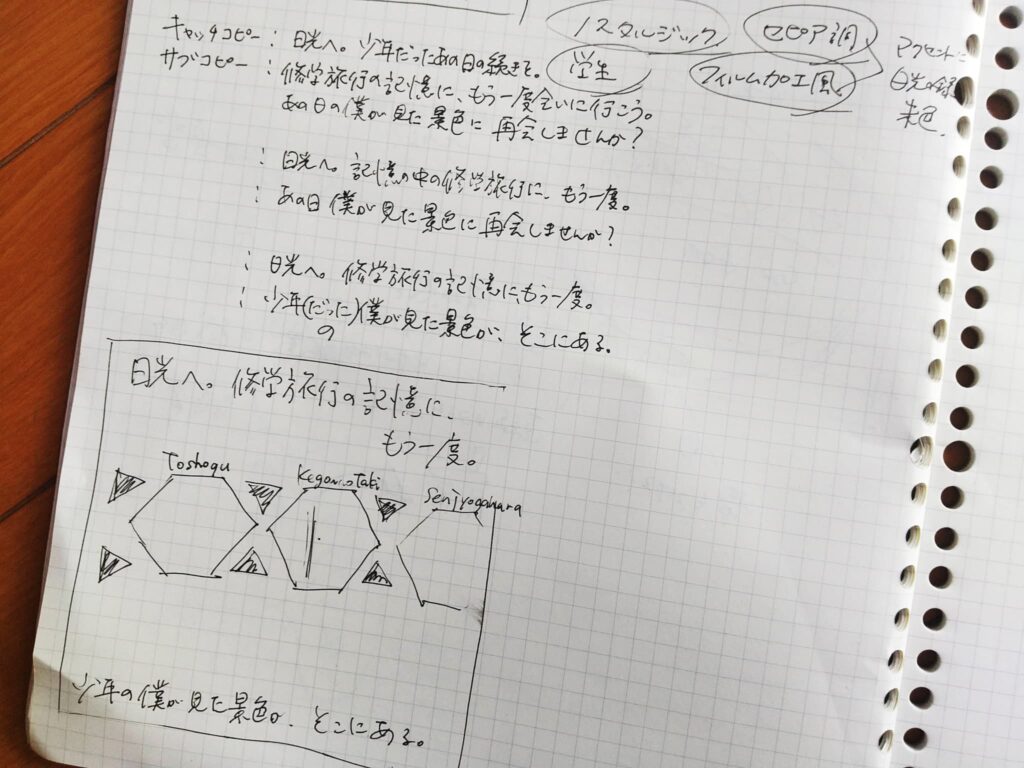 ノスタルジック
セピア調
学生
フィルム加工風
アクセントに
日光の緑
朱色.
キャッチコピー : 日光へ。少年だったあの日の続きを。
サブコピー : 修学旅行の記憶に、もう一度会いに行こう。
あの日の僕が見た景色に再会しませんか?
: 日光へ。記憶の中の修学旅行に、もう一度。
: あの日僕が見た景色に再会しませんか?
: 日光へ。修学旅行の記憶に、もう一度。
: 少年(だった)僕が見た景色が、そこにある。
の
日光へ。修学旅行の記憶に、
もう一度。
Toshogu
Kegon no Taki
Senjyogahara
少年の僕が見た景色が、そこにある。